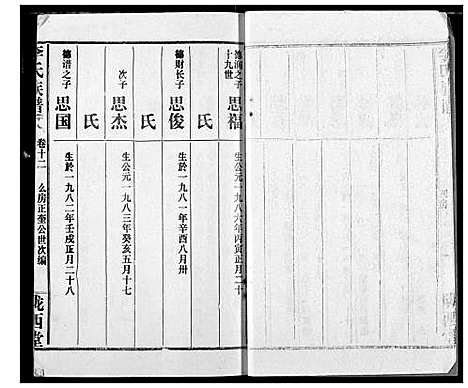 十九世
德润之子 思福
生公元一九八六年丙寅正月二十
氏
德财长子 思俊
生於一九八一年辛酉八月卅
氏
次子 思杰
生公元一九八三年癸亥五月十七
氏
德谱之子 思国
生於一九八二年壬戌正月二十八
李氏族谱 卷十二 么房正奎公世次编 陇西堂